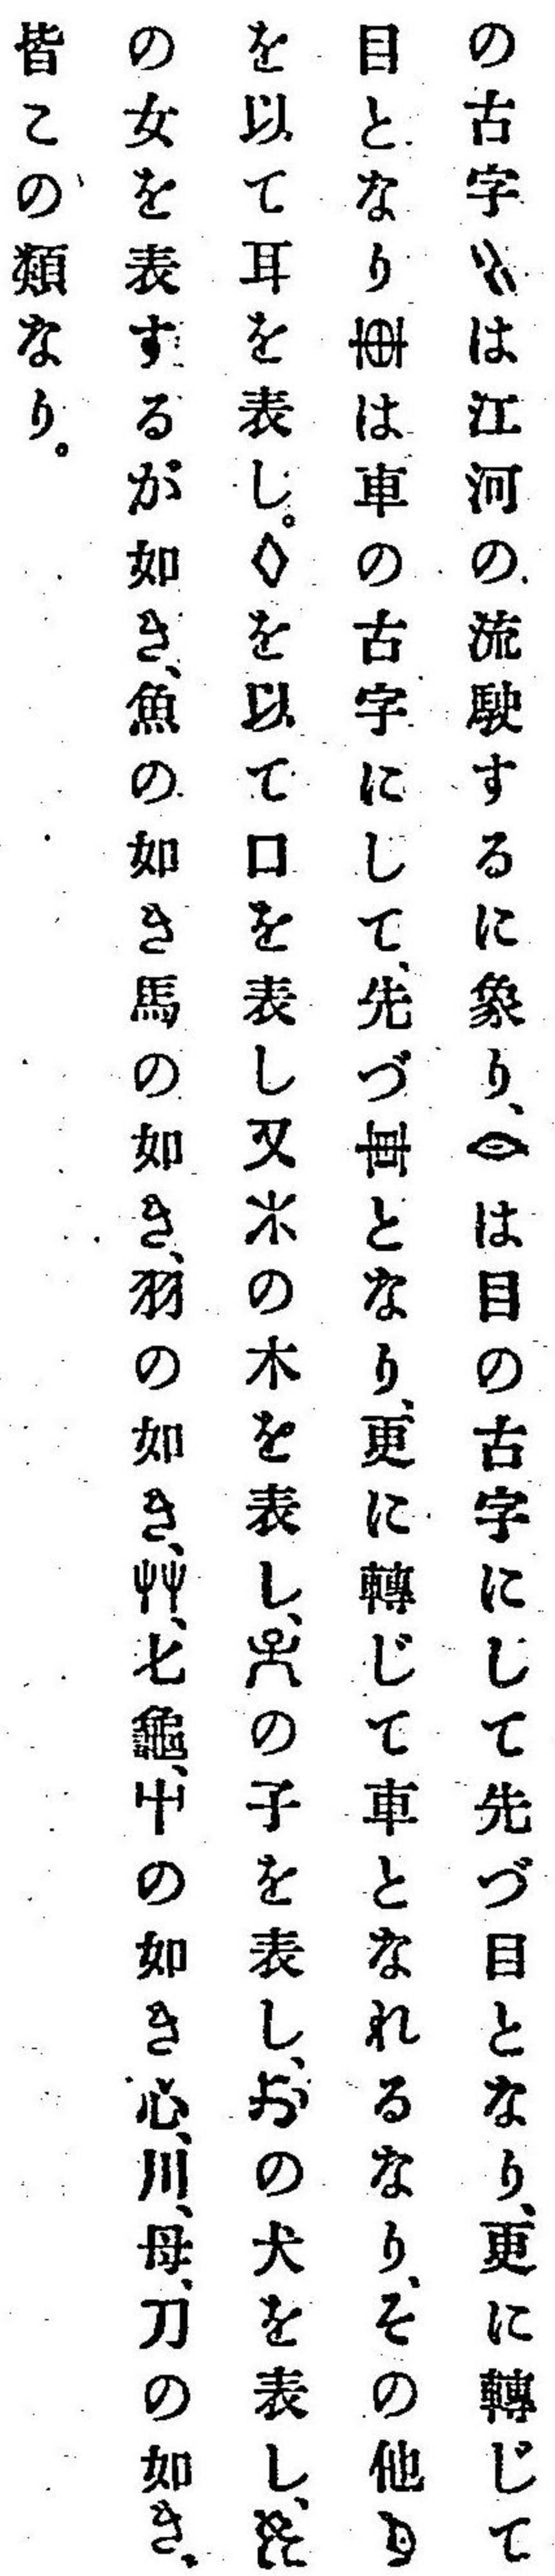 の古字は江河の流駛するに象り、は目の古字にして先づ目となり、更に轉じて
目となりは車の古字にして、先づとなり、更に轉じて車となれるなり、その他
を以て耳を表し。を以て口を表し又の木を表し、の子を表し、の犬を表し、
の女を表するが如き、魚の如き馬の如き、羽の如き、艸、七龜、屮の如き心、川、母、刀の如き、
皆この類なり。